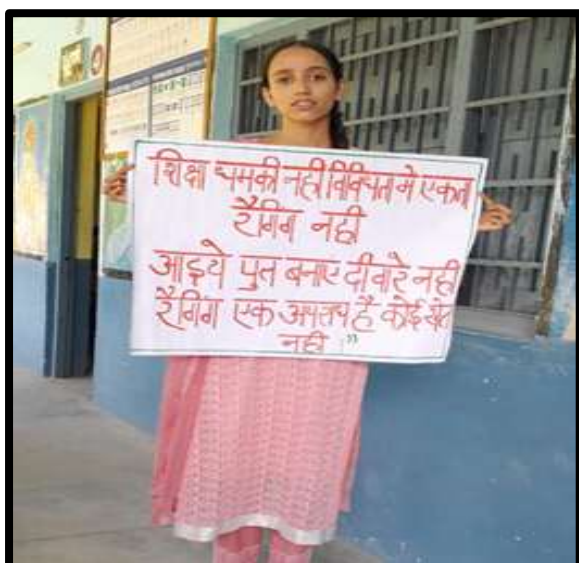 शिक्षा धमकी नहीं विविधता मे एकता
रैगिंग नहीं
आइये पुल बनाए दीवारे नही
रैगिंग एक अपराध है कोई खेल
नहीं ।"